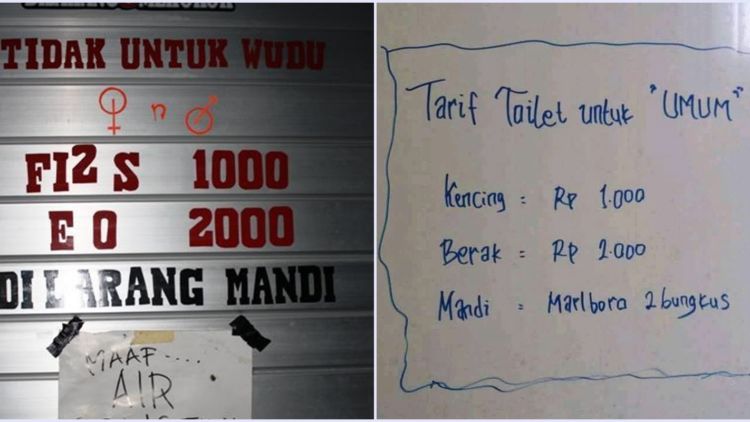 TIDAK UNTUK WUDU
♀ n ♂
FI2 S 1000
E O 2000
DILARANG MANDI
MAAF....
AIR
Tarif Toilet untuk "UMUM"
Kencing = Rp 1.000
Berak = Rp 2.000
Mandi = Marlboro 2 bungkus